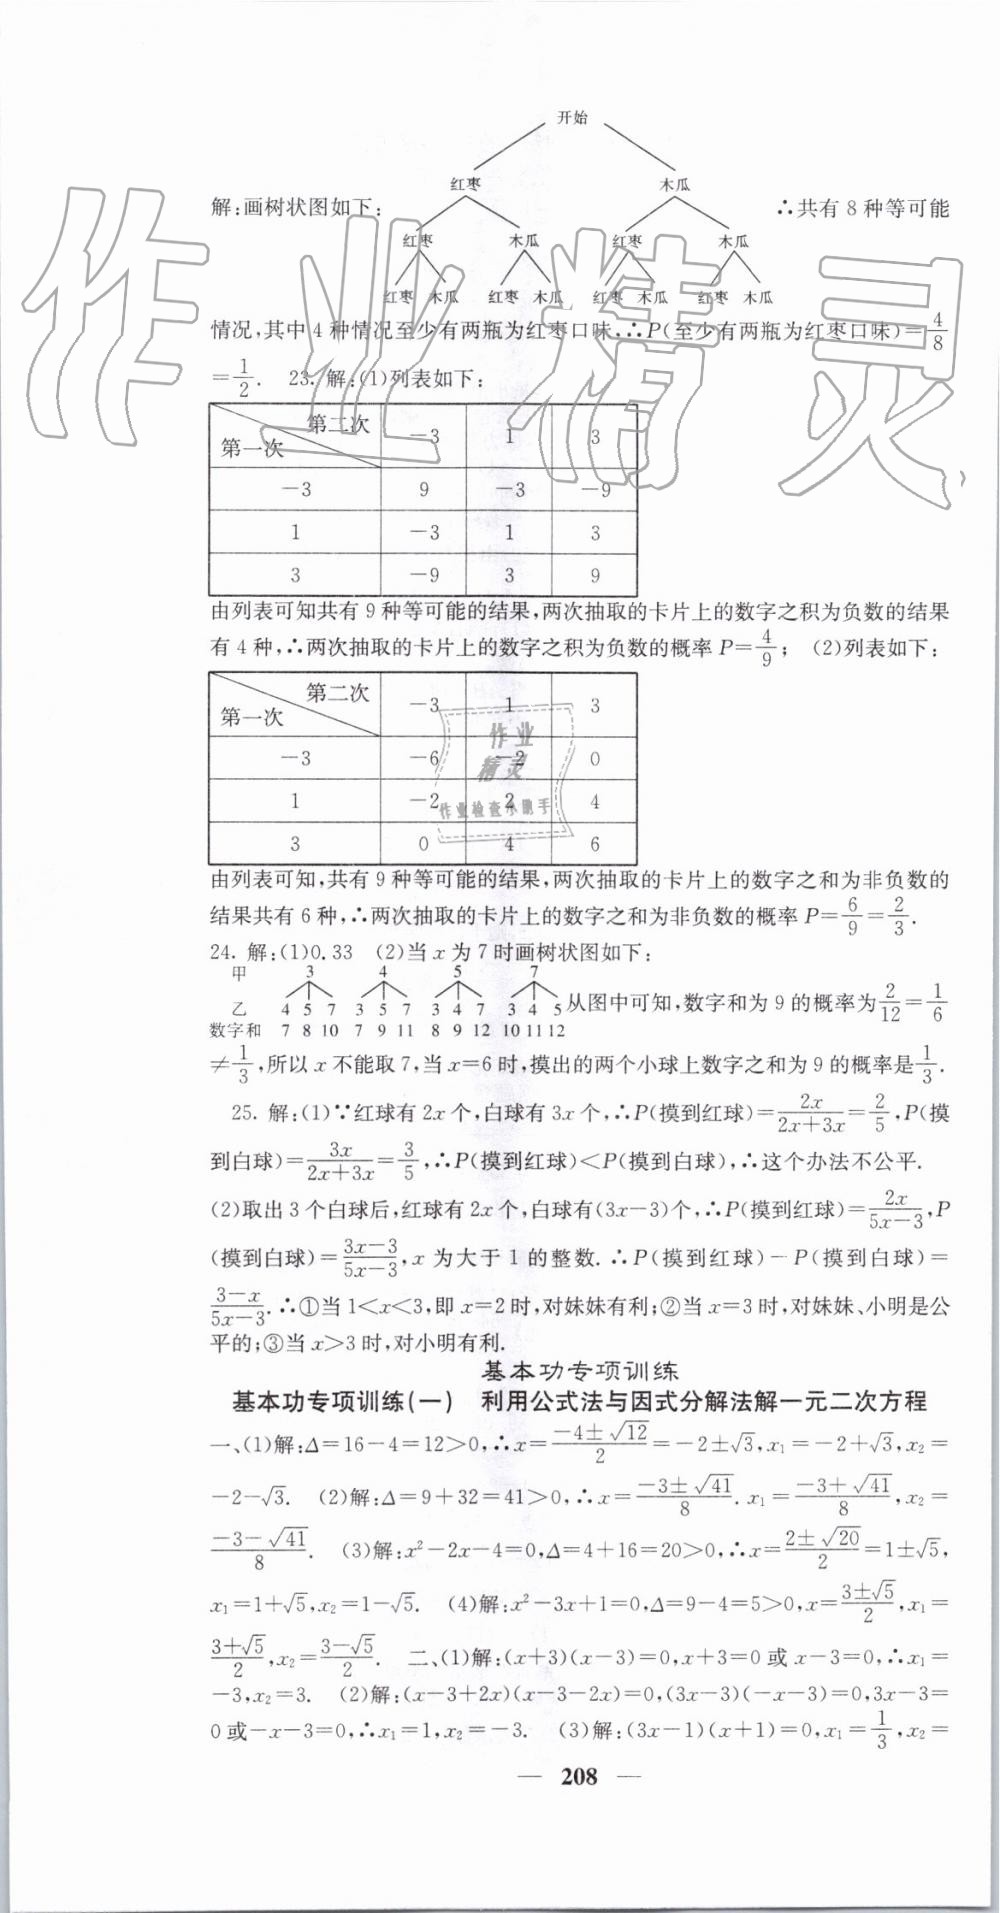 开始
红枣 木瓜
解:画树状图如下: ∴共有 8 种等可能
红枣 木瓜 红枣 木瓜
红枣 木瓜 红枣 木瓜 红枣 木瓜 红枣 木瓜
情况,其中 4 种情况至少有两瓶为红枣口味,∴P(至少有两瓶为红枣口味)=4/8
=1/2. 23. 解:(1)列表如下:
第二次 第一次 −3 1 3
−3 9 −3 −9
1 −3 1 3
3 −9 3 9
由列表可知共有 9 种等可能的结果,两次抽取的卡片上的数字之积为负数的结果
有 4 种,∴两次抽取的卡片上的数字之积为负数的概率 P=4/9; (2)列表如下:
第二次 第一次 −3 1 3
−3 −6 −2 0
1 −2 2 4
3 0 4 6
由列表可知,共有 9 种等可能的结果,两次抽取的卡片上的数字之和为非负数的
结果共有 6 种,∴两次抽取的卡片上的数字之和为非负数的概率 P=6/9=2/3.
24. 解:(1)0.33 (2)当 x 为 7 时画树状图如下:
甲 3 4 5 7
乙 4 5 7 3 5 7 3 4 7 3 4 5 从图中可知,数字和为 9 的概率为2/12=1/6
数字和 7 8 10 7 9 11 8 9 12 10 11 12
≠1/3,所以 x 不能取 7,当 x=6 时,摸出的两个小球上数字之和为 9 的概率是1/3.
25. 解:(1)∵红球有 2x 个,白球有 3x 个,∴P(摸到红球)=2x/(2x+3x)=2/5,P(摸
到白球)=3x/(2x+3x)=3/5,∴P(摸到红球)<P(摸到白球),∴这个办法不公平.
(2)取出 3 个白球后,红球有 2x 个,白球有(3x−3)个,∴P(摸到红球)=2x/(5x−3),P
(摸到白球)=(3x−3)/(5x−3),x 为大于 1 的整数. ∴P(摸到红球)−P(摸到白球)=
(3−x)/(5x−3). ∴①当 1<x<3,即 x=2 时,对妹妹有利;②当 x=3 时,对妹妹、小明是公
平的;③当 x>3 时,对小明有利.
基本功专项训练
基本功专项训练(一) 利用公式法与因式分解法解一元二次方程
一、(1)解:Δ=16−4=12>0,∴x=(−4±√12)/2=−2±√3,x₁=−2+√3,x₂=
−2−√3. (2)解:Δ=9+32=41>0,∴x=(−3±√41)/8. x₁=(−3+√41)/8,x₂=
(−3−√41)/8. (3)解:x²−2x−4=0,Δ=4+16=20>0,∴x=(2±√20)/2=1±√5,
x₁=1+√5,x₂=1−√5. (4)解:x²−3x+1=0,Δ=9−4=5>0,x=(3±√5)/2,x₁=
(3+√5)/2,x₂=(3−√5)/2. 二、(1)解:(x+3)(x−3)=0,x+3=0 或 x−3=0,∴x₁=
−3,x₂=3. (2)解:(x−3+2x)(x−3−2x)=0,(3x−3)(−x−3)=0,3x−3=
0 或−x−3=0,∴x₁=1,x₂=−3. (3)解:(3x−1)(x+1)=0,x₁=1/3,x₂=
— 208 —
作业精灵
作业
精灵
作业检查小助手